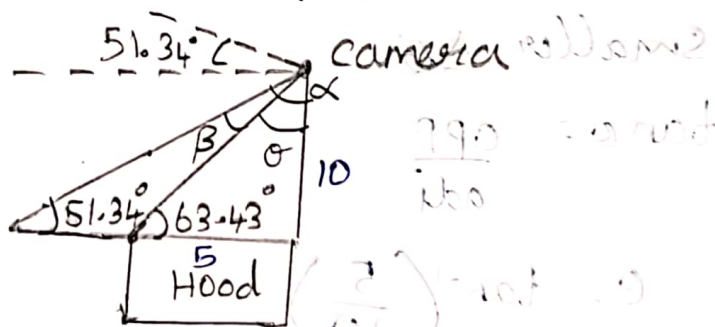 51.34°
camera
α
β
θ
10
51.34°
63.43°
5
Hood